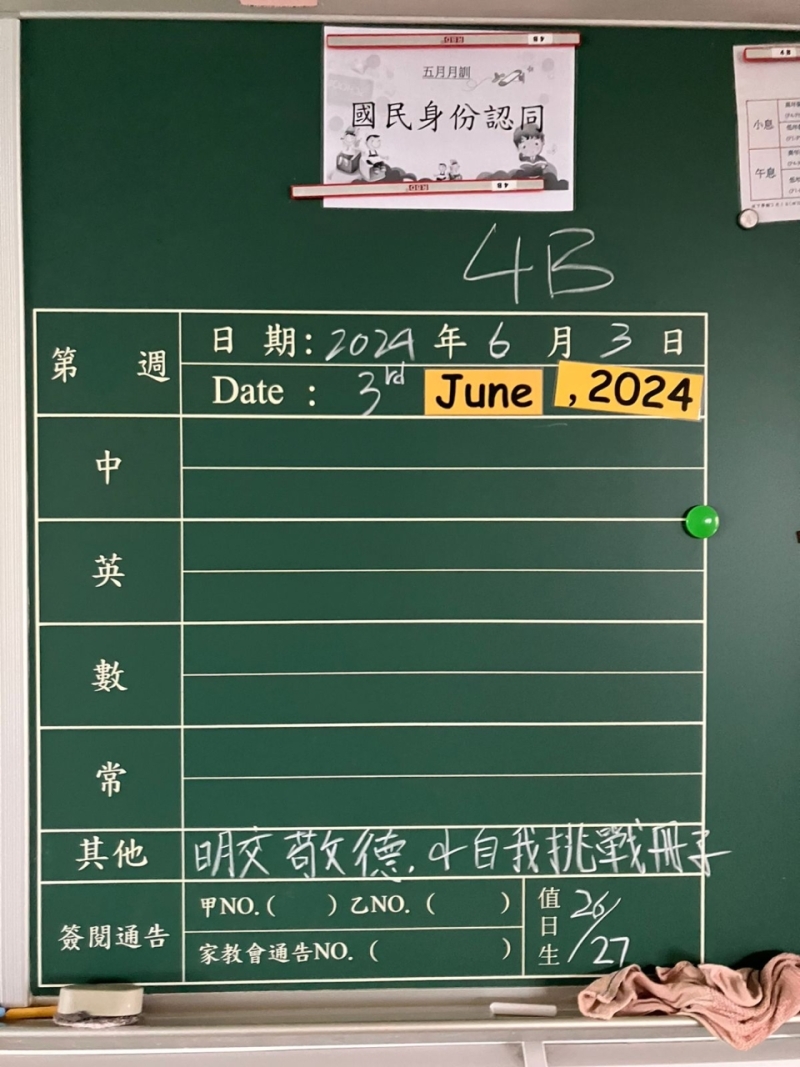 五月月訓
國民身份認同
4B
第 週
日 期: 2024 年 6 月 3 日
Date : 3rd June , 2024
中
英
數
常
其他 明交敬德, 自我挑戰冊子
簽閱通告
甲NO.( ) 乙NO. ( )
家教會通告NO. ( )
值日生 26/27
4B
小息
午息